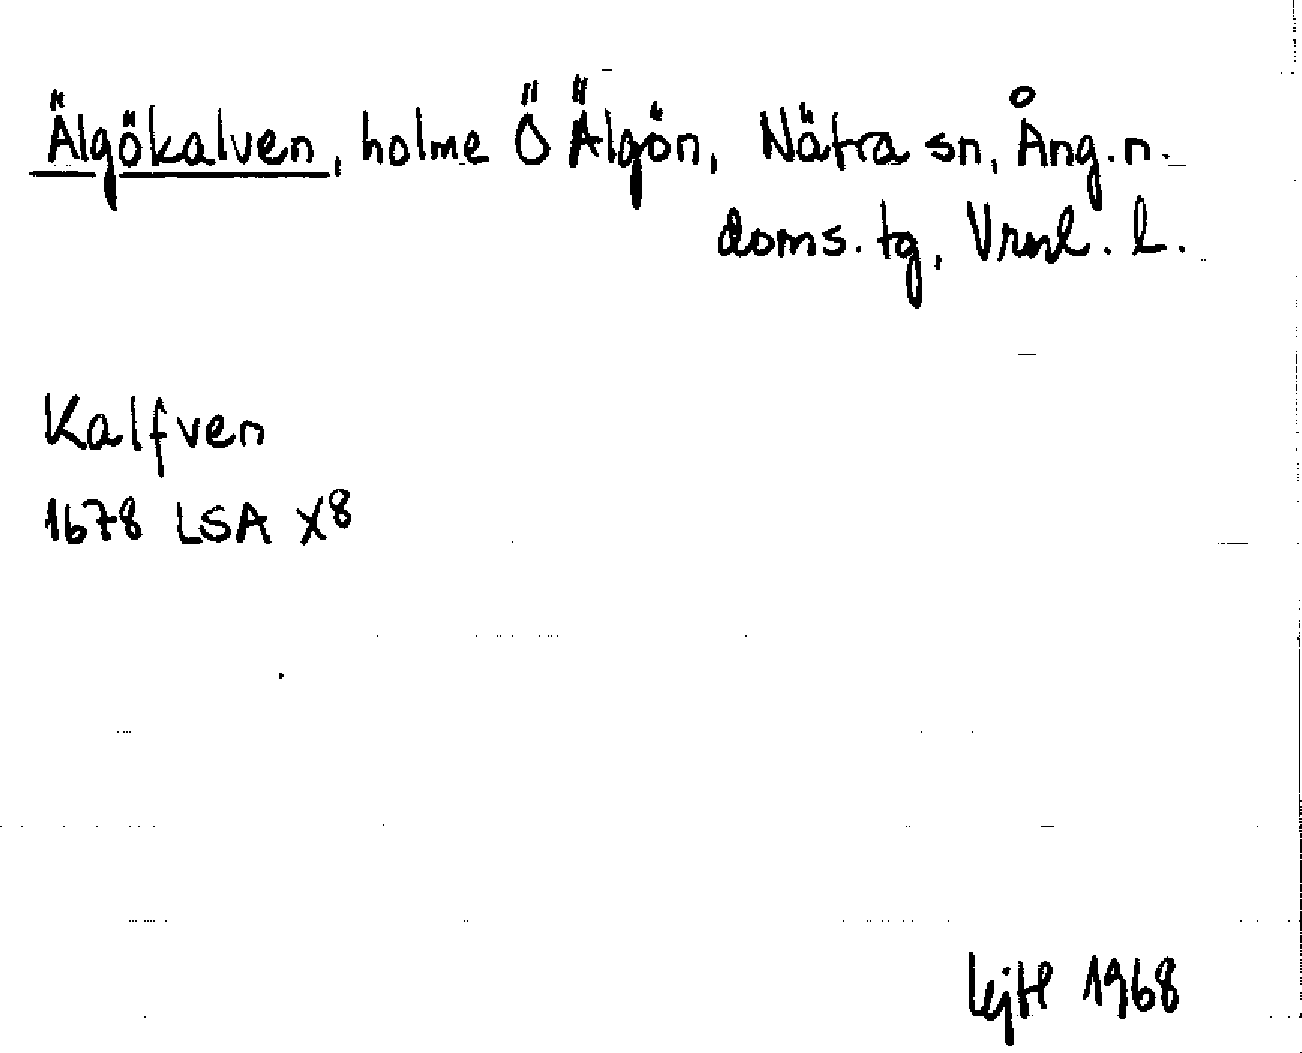 Älgökalven, holme Ö Älgön, Nätra sn, Ång.n.
doms.tg, Vrnl. l.
Kalfven
1678 LSA X8
1968